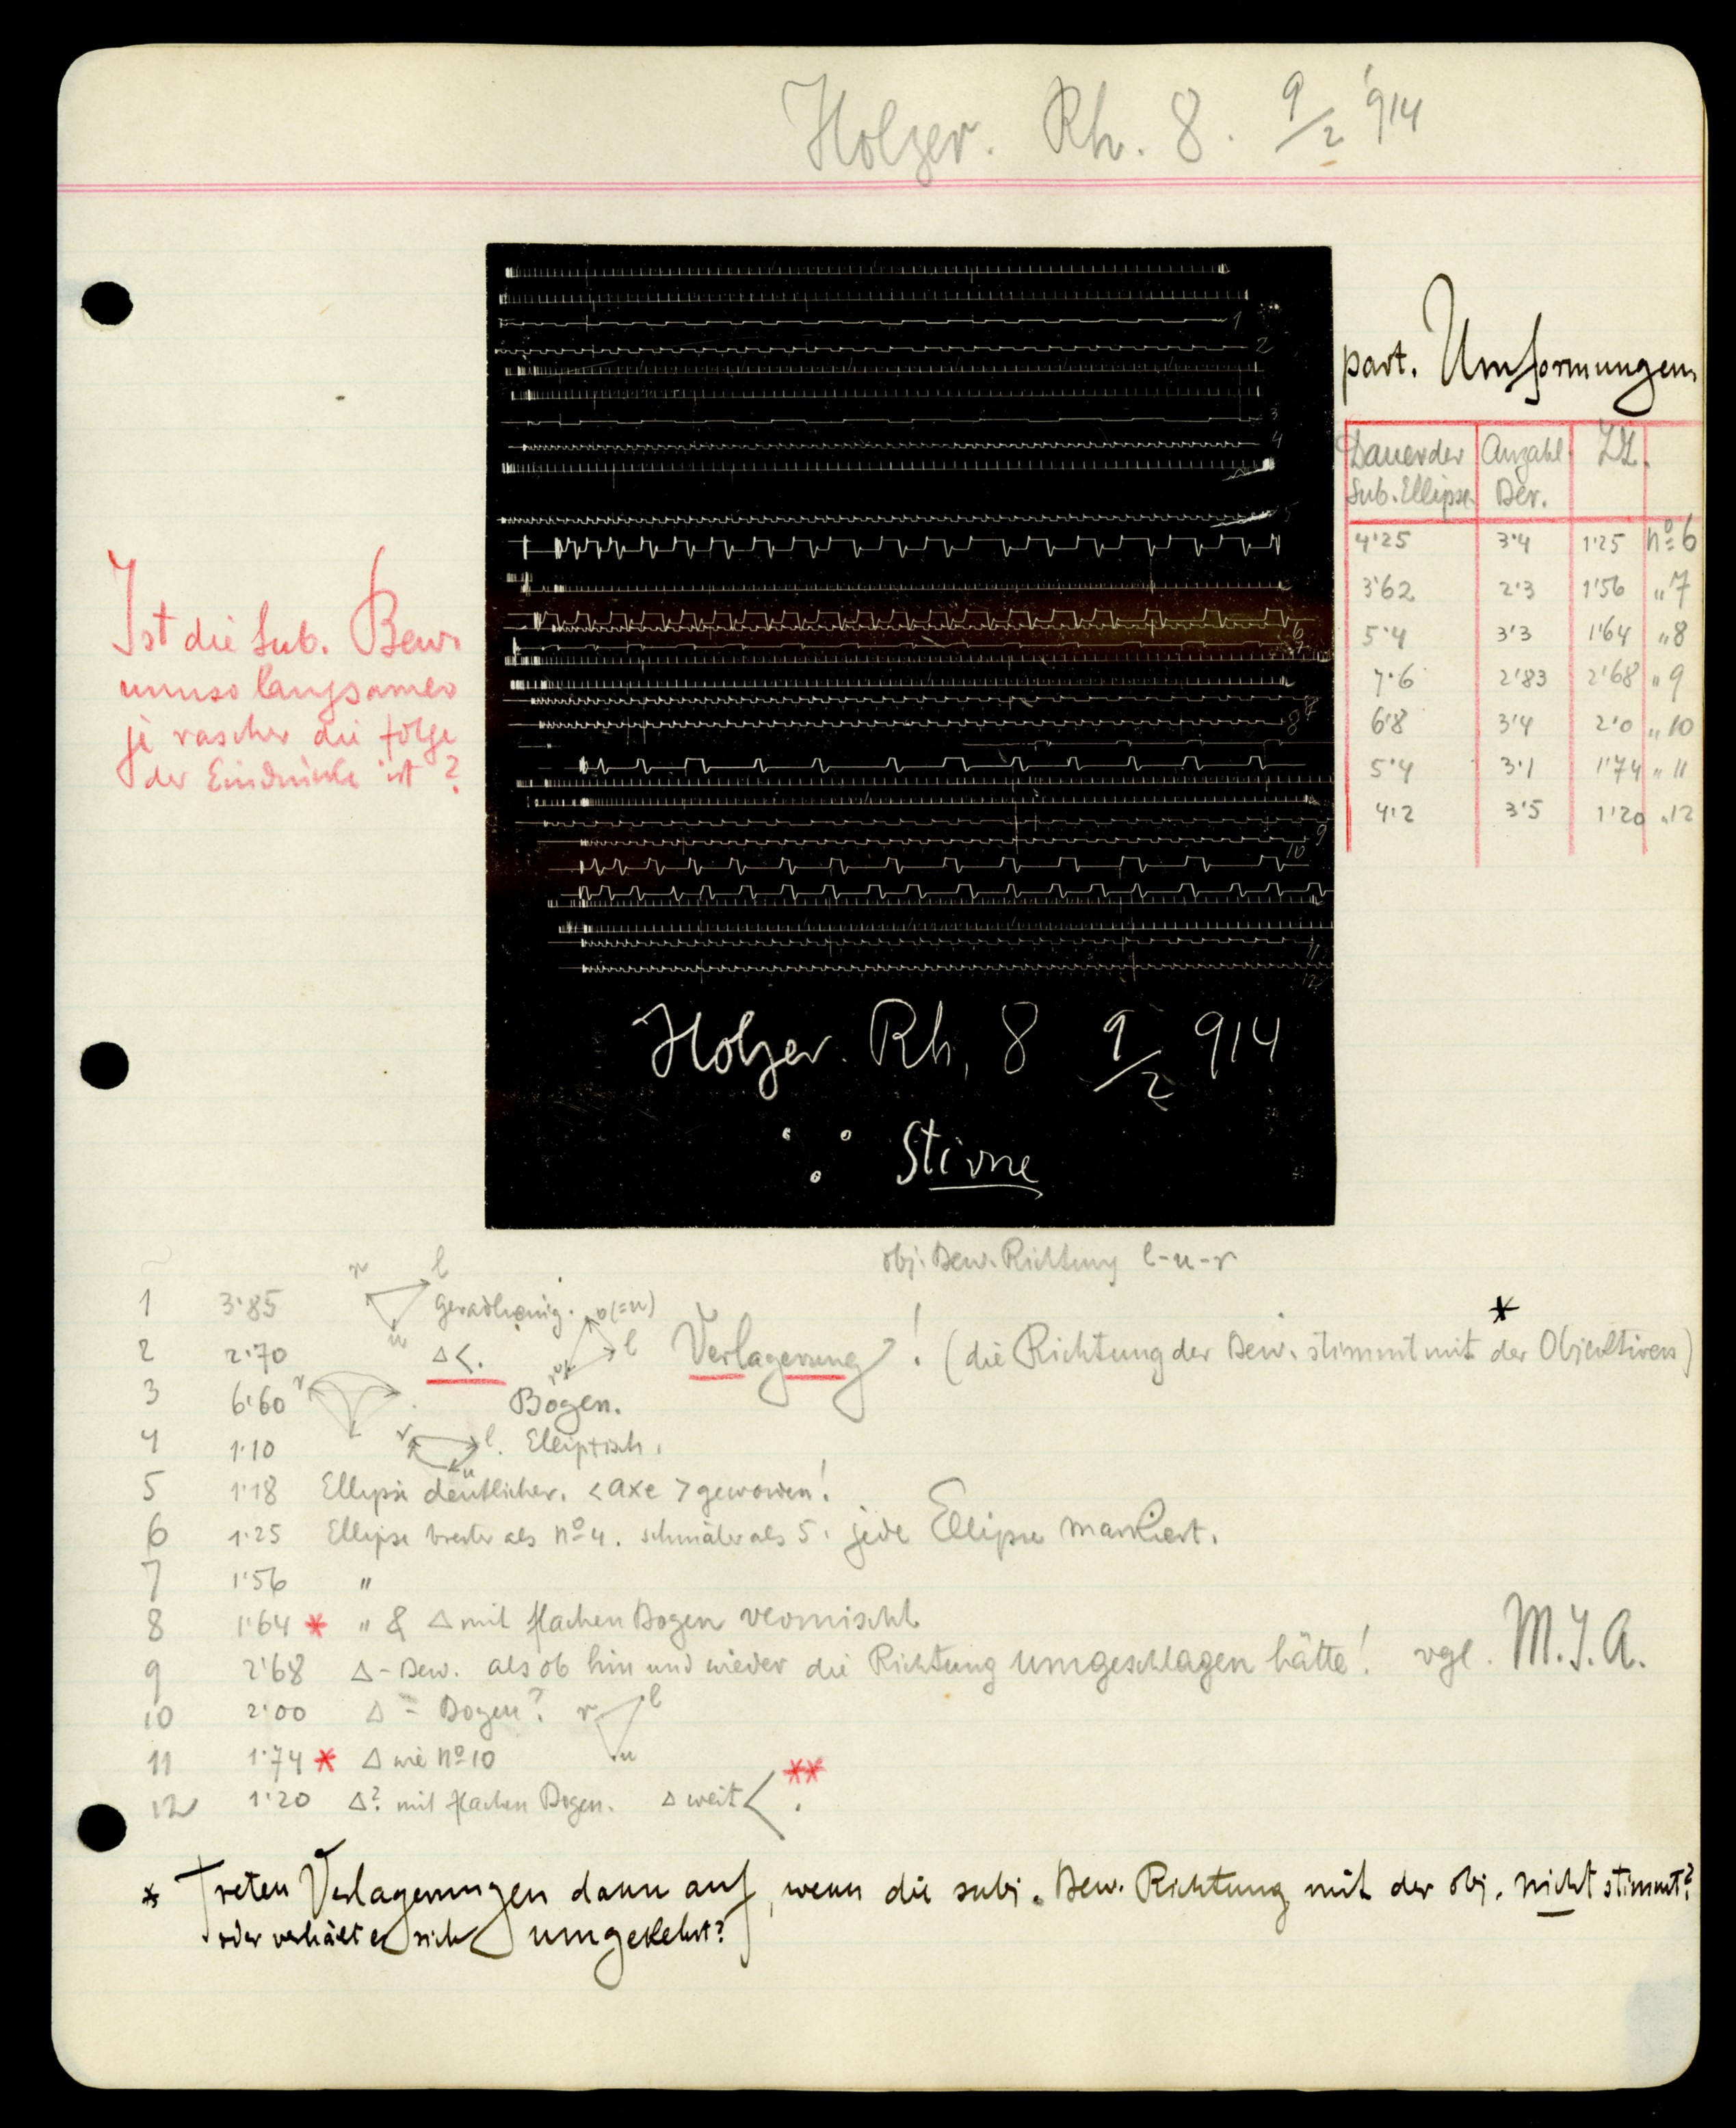 Holzer. Rh. 8. 9/2 '914
1
2
3
4
5
6
7
8
9
10
11
12
Holzer. Rh. 8 9/2 914
Stirne
part. Umformungen
Dauer der Sub. Ellipse
Anzahl Bew.
ZZ.
4'25 3'4 1'25 nº 6
3'62 2'3 1'56 „ 7
5'4 3'3 1'64 „ 8
7'6 2'83 2'68 „ 9
6'8 3'4 2'0 „ 10
5'4 3'1 1'74 „ 11
4'2 3'5 1'20 „ 12
Ist die Sub. Bew.
umso langsamer
je rascher die Folge
der Eindrücke ist?
obj. Bew. Richtung l-u-r
1 3'85 r l u geradlinig.
2 2'70 Δ<. o(=u) l r Verlagerung! (die Richtung der Bew. stimmt mit der Objectiven) *
3 6'60 r Bogen.
4 1'10 r l u. Elliptisch.
5 1'18 Ellipse deutlicher. <axe> geworden!
6 1'25 Ellipse breiter als nº 4. schmäler als 5. jede Ellipse markiert.
7 1'56 "
8 1'64 * " & Δ mit flachen Bogen vermischt
9 2'68 Δ-Bew. als ob hin und wieder die Richtung umgeschlagen hätte! vgl. M.J.A.
10 2'00 Δ - Bogen? r l u
11 1'74 * Δ wie nº 10
12 1'20 Δ? mit flachen Bogen. Δ weit < . **
* Treten Verlagerungen dann auf, wenn die subj. Bew. Richtung mit der obj. nicht stimmt?
oder verhält es sich umgekehrt?